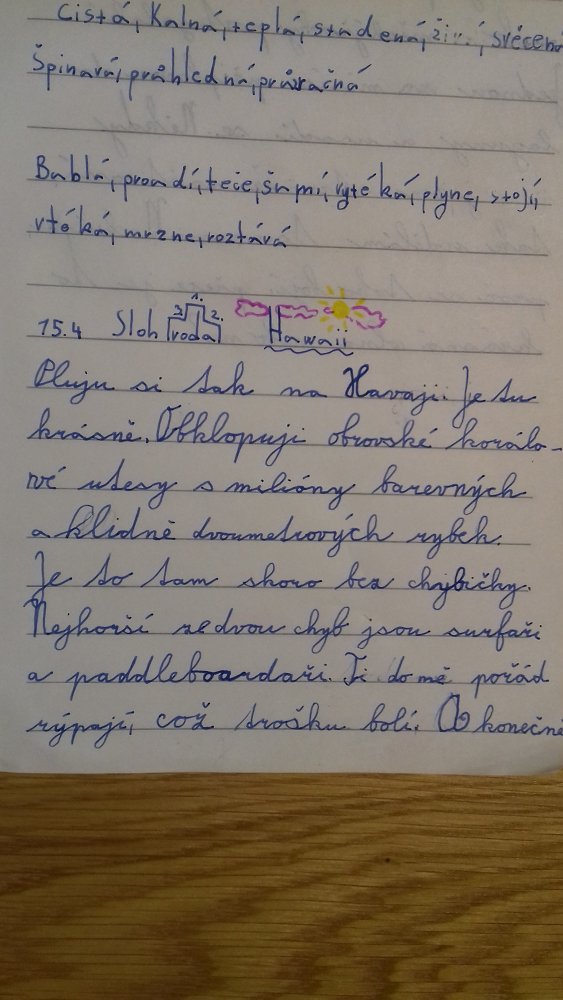 čistá, Kalná, teplá, studená, živá, svěcená
špinavá, průhledná, průzračná
Bublá, proudí, teče, šumí, vytéká, plyne, stojí,
vtéká, mrzne, roztává
1.
3. 2.
15.4 Sloh voda Hawaii
Pluju si tak na Havaji. Je tu
krásně. Obklopují obrovské korálo-
vé utesy s milióny barevných
a klidně dvoumetrových rybek.
Je to tam skoro bez chybičky.
Nejhorší ze dvou chyb jsou surfaři
a paddleboardaři. Ti do mě pořád
rýpají, což trošku bolí. konečně